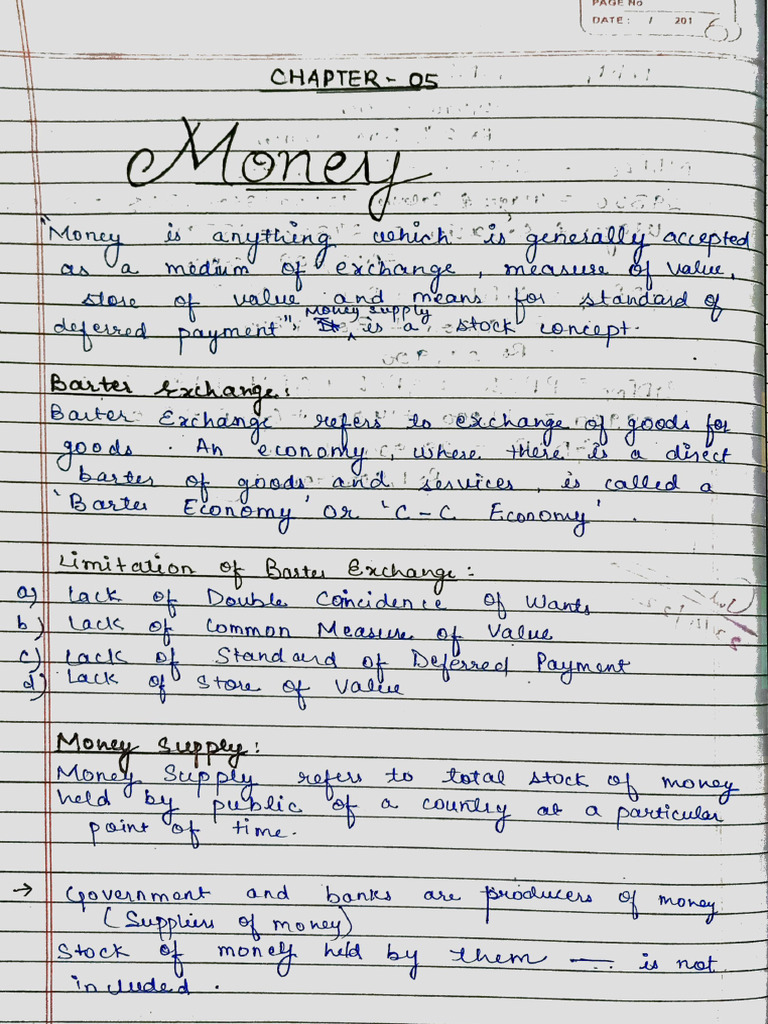 PAGE No
DATE: / 201
CHAPTER - 05
Money
"Money is anything which is generally accepted
as a medium of exchange, measure of value,
store of value and means for standard of
Money supply
deferred payment". is a stock concept.
Barter Exchange:
Barter Exchange refers to exchange of goods for
goods. An economy, where there is a direct
barter of goods and services, is called a
'Barter Economy' or 'C-C Economy'.
Limitation of Barter Exchange:
a) Lack of Double Coincidence of Wants
b) Lack of Common Measure of Value
c) Lack of Standard of Deferred Payment
d) Lack of Store of Value
Money Supply:
Money Supply refers to total stock of money
held by public of a country at a particular
point of time.
→ Government and banks are producers of money
(Suppliers of money)
Stock of money held by them — is not
included.